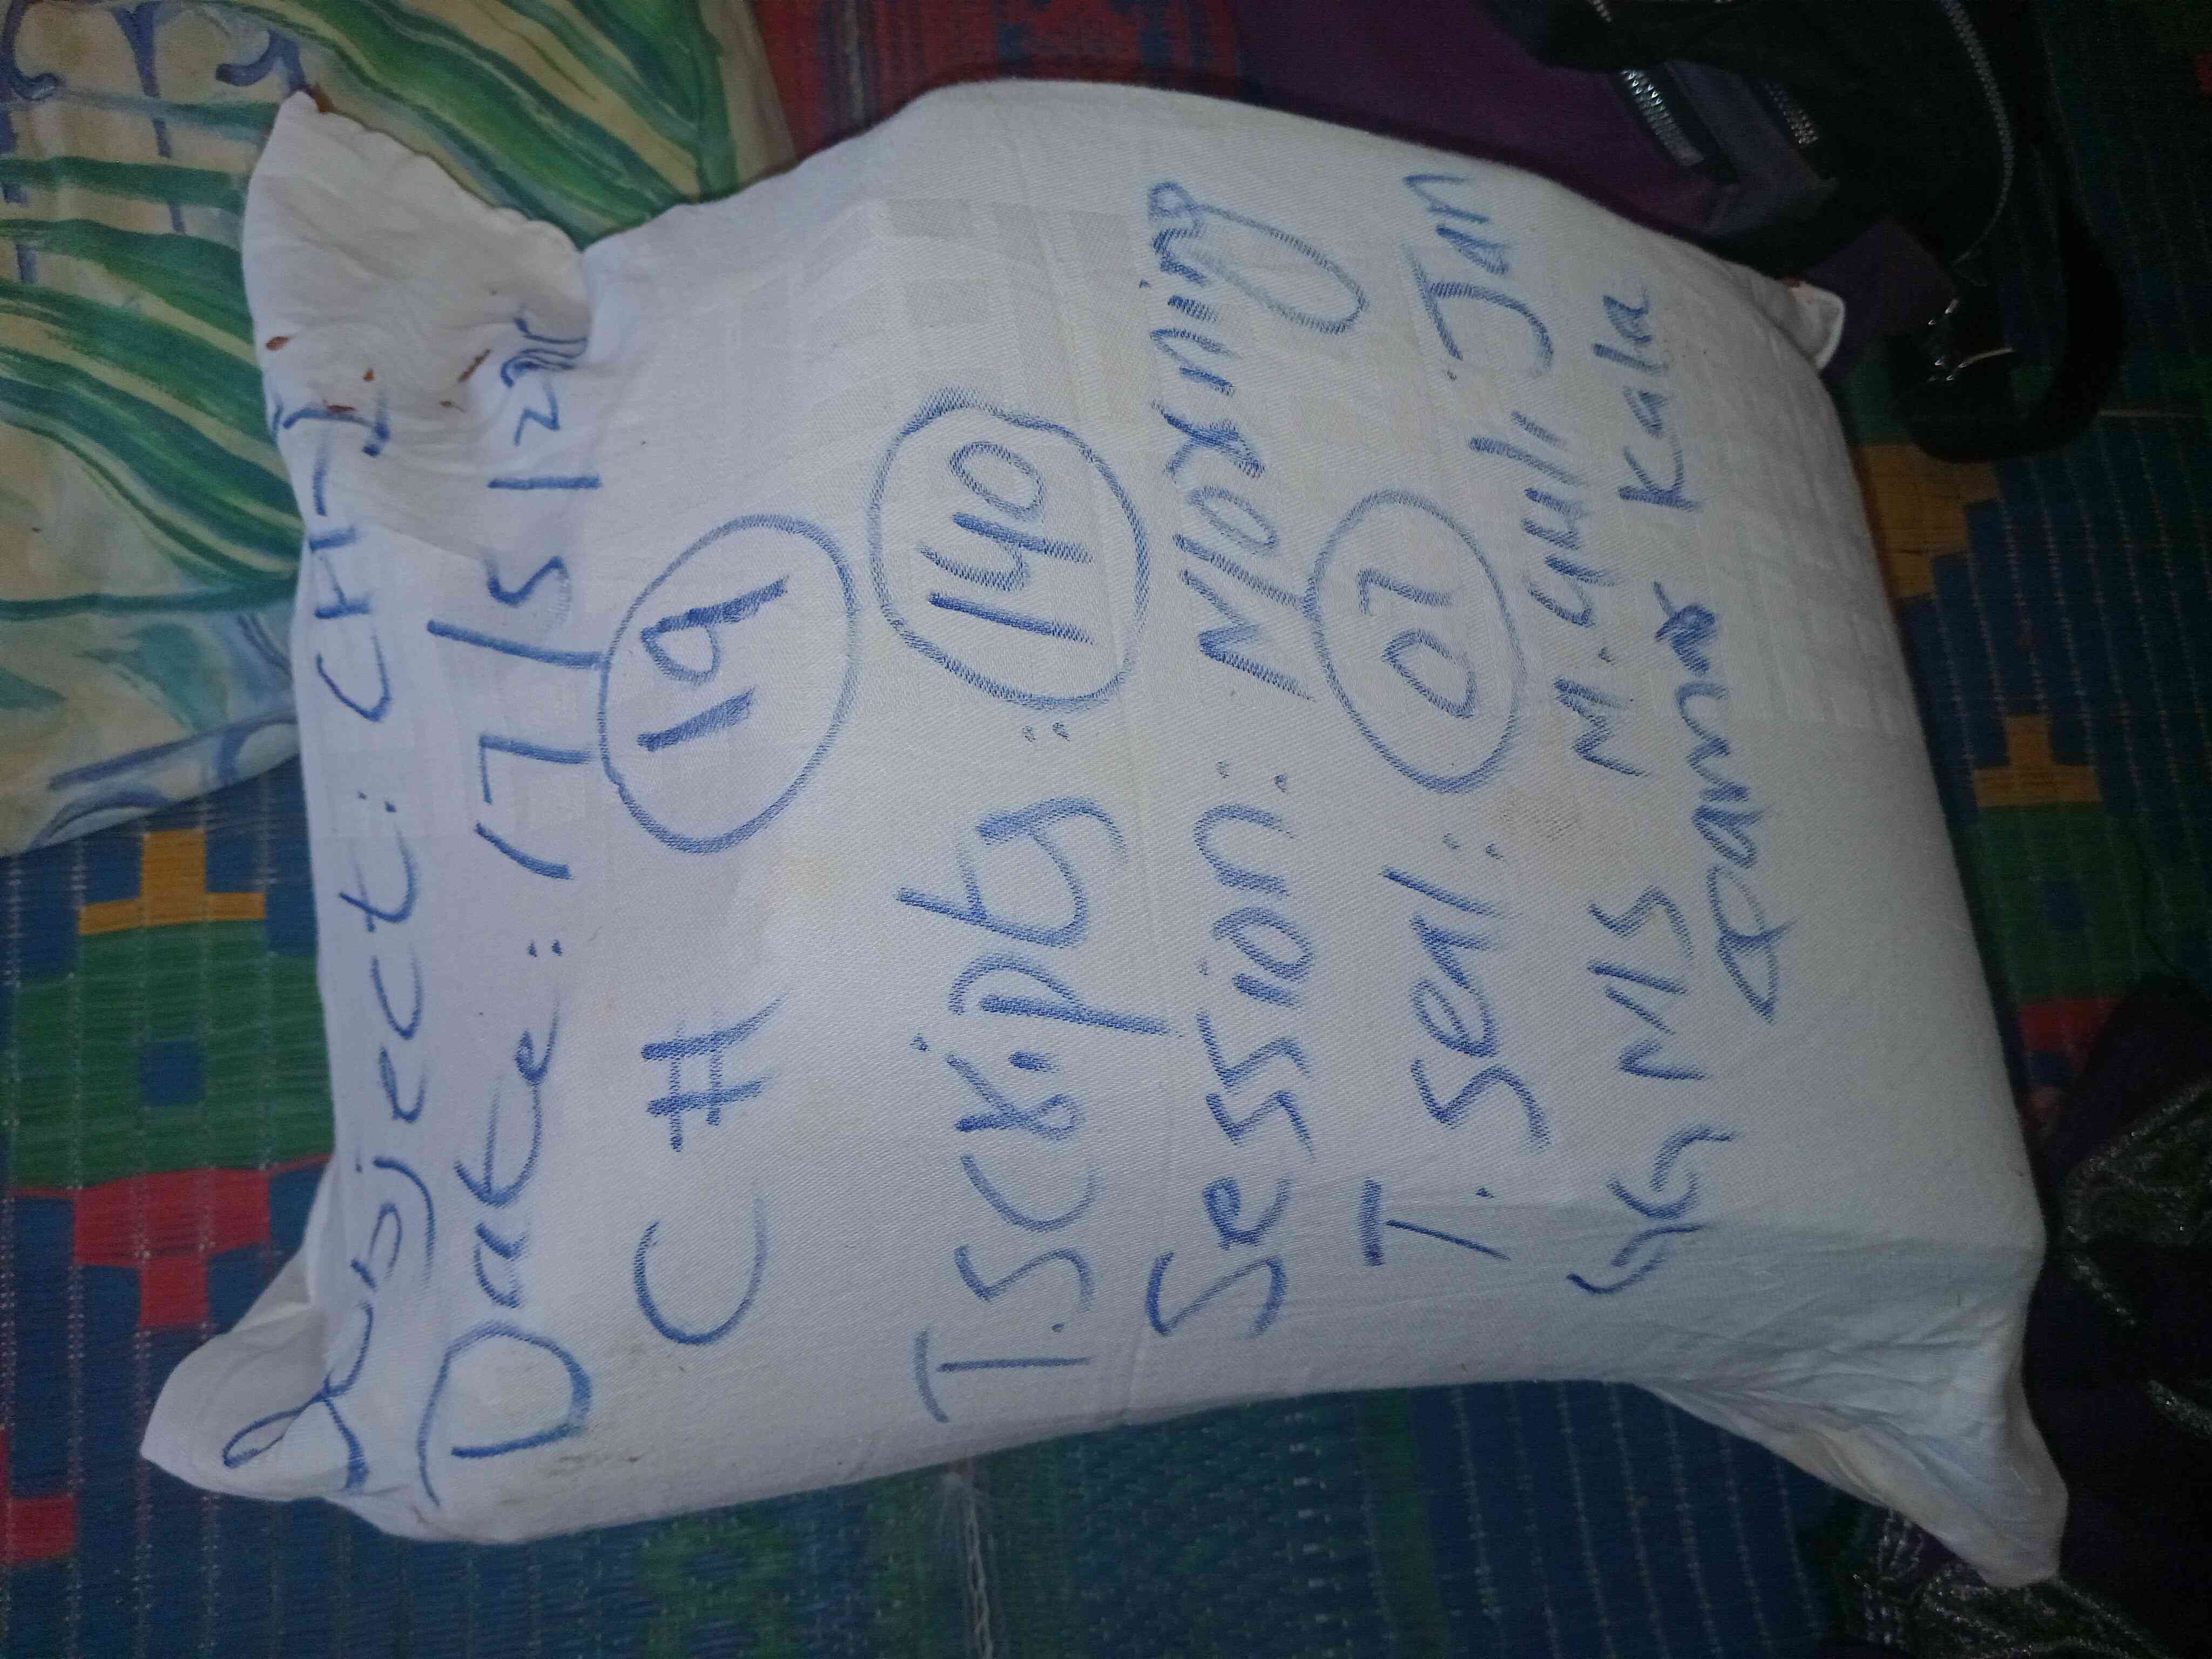 Subject: CH-I
Date: 17/5/2
C # 19
T.Scripts: 140
Session: Morning
T. Seal: 02
M. Gulli Jan
MS Kala